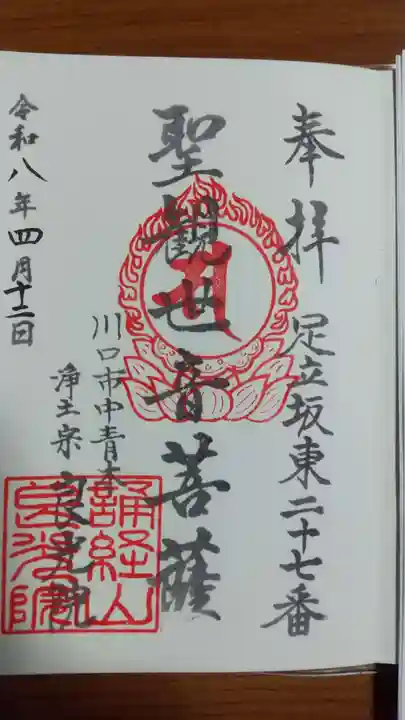 奉拝 足立坂東二十七番
聖観世音菩薩
川口市中青木
浄土宗 良光院
令和八年四月十二日
誦経山
良光院